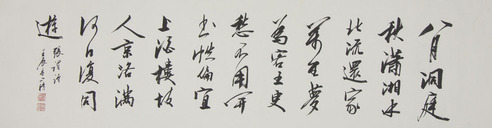 八月洞庭
秋瀟湘水
北流還家
萬里夢
為客五更
愁不用開
書帙偏宜
上酒樓故
人京洛滿
何日復同
遊 張謂詩